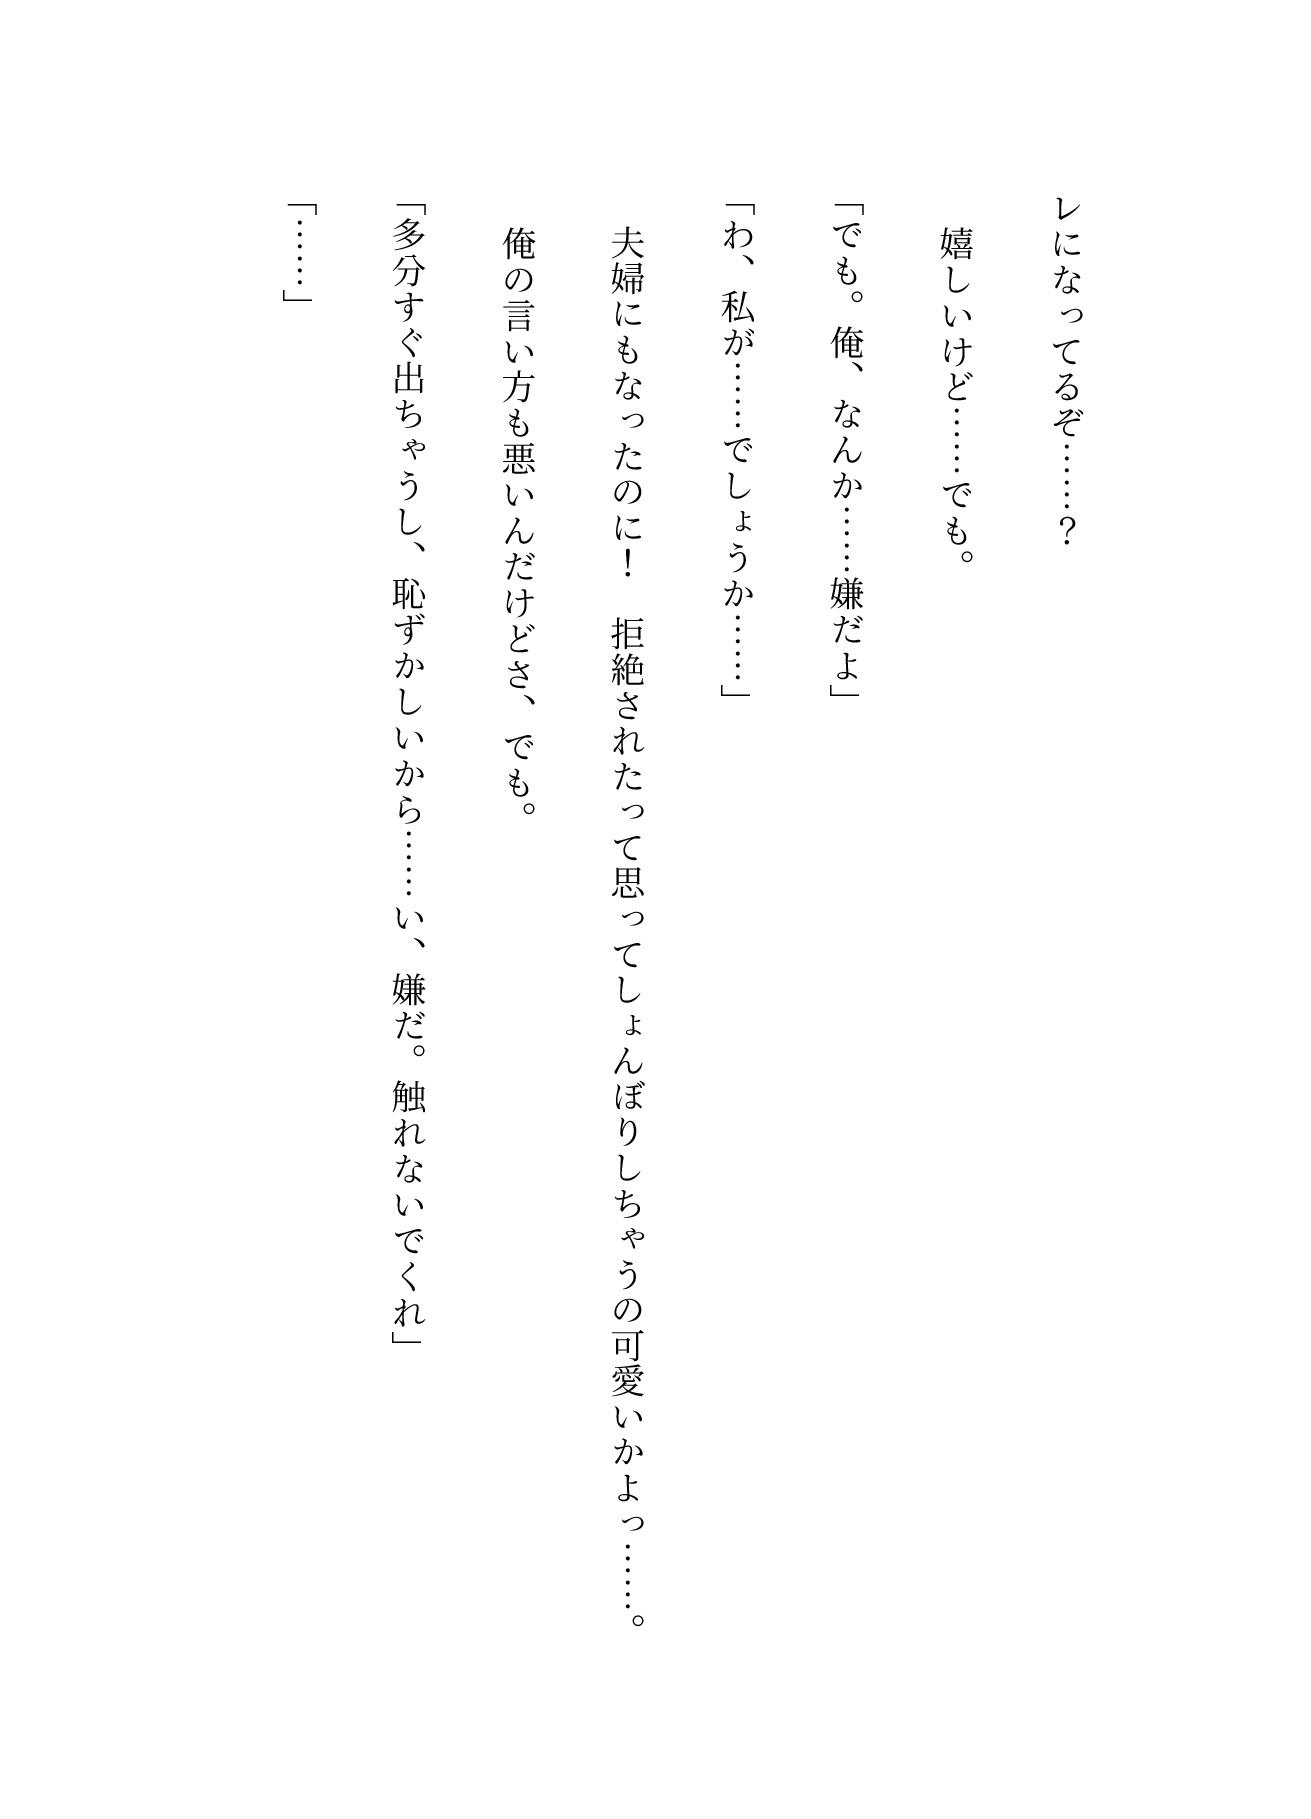 レになってるぞ……？
　嬉しいけど……でも。
「でも。俺、なんか……嫌だよ」
「わ、私が……でしょうか……」
　夫婦にもなったのに！　拒絶されたって思ってしょんぼりしちゃうの可愛いかよっ……。
　俺の言い方も悪いんだけどさ、でも。
「多分すぐ出ちゃうし、恥ずかしいから……い、嫌だ。触れないでくれ」
「……」